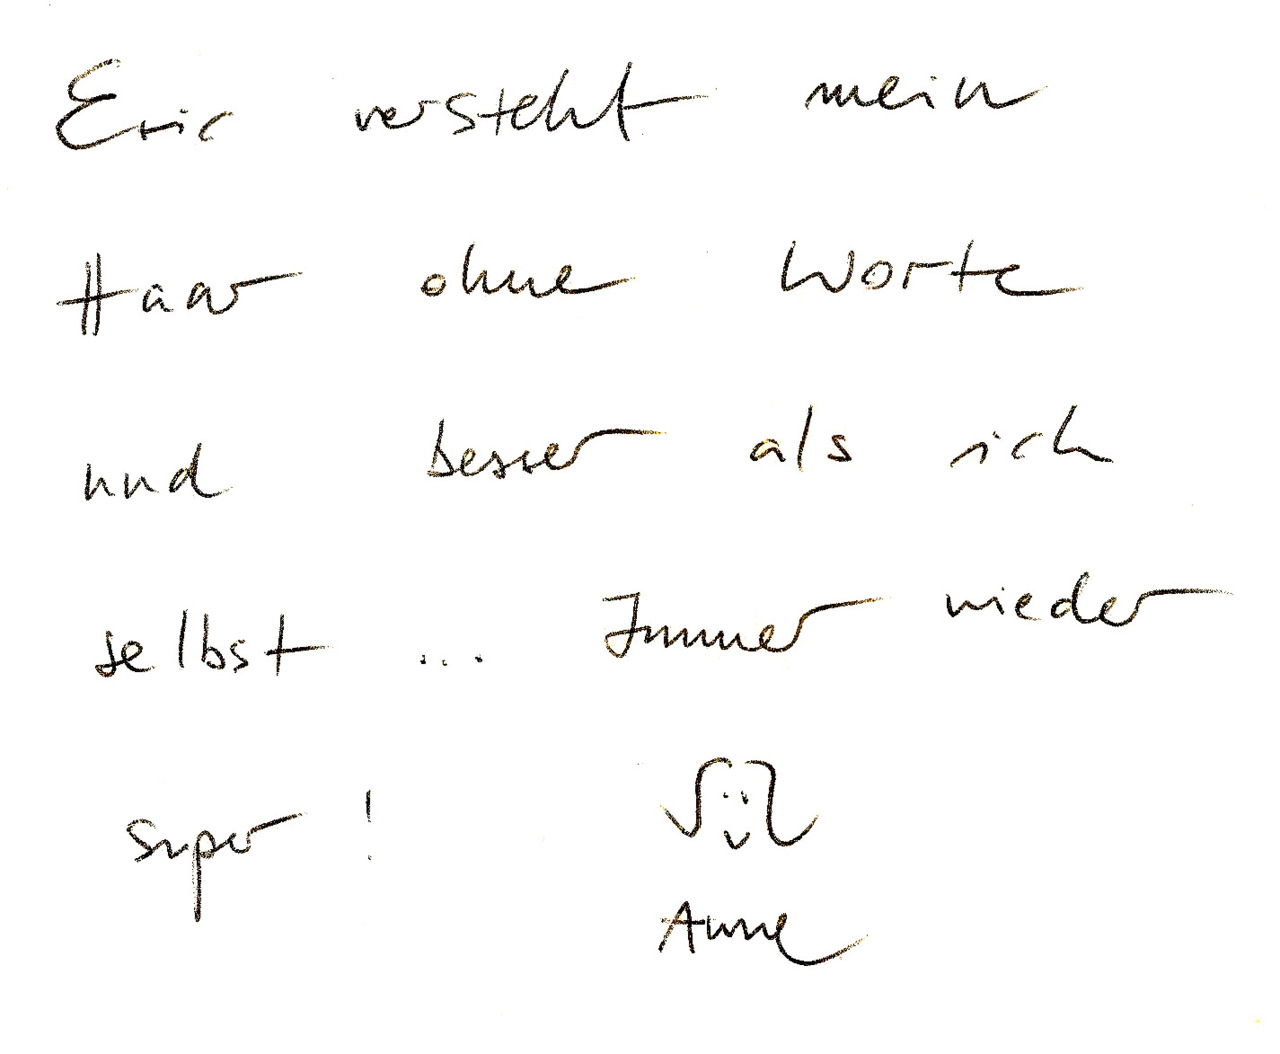 Eric versteht mein
Haar ohne Worte
und besser als ich
selbst ... Immer wieder
super !
Anne